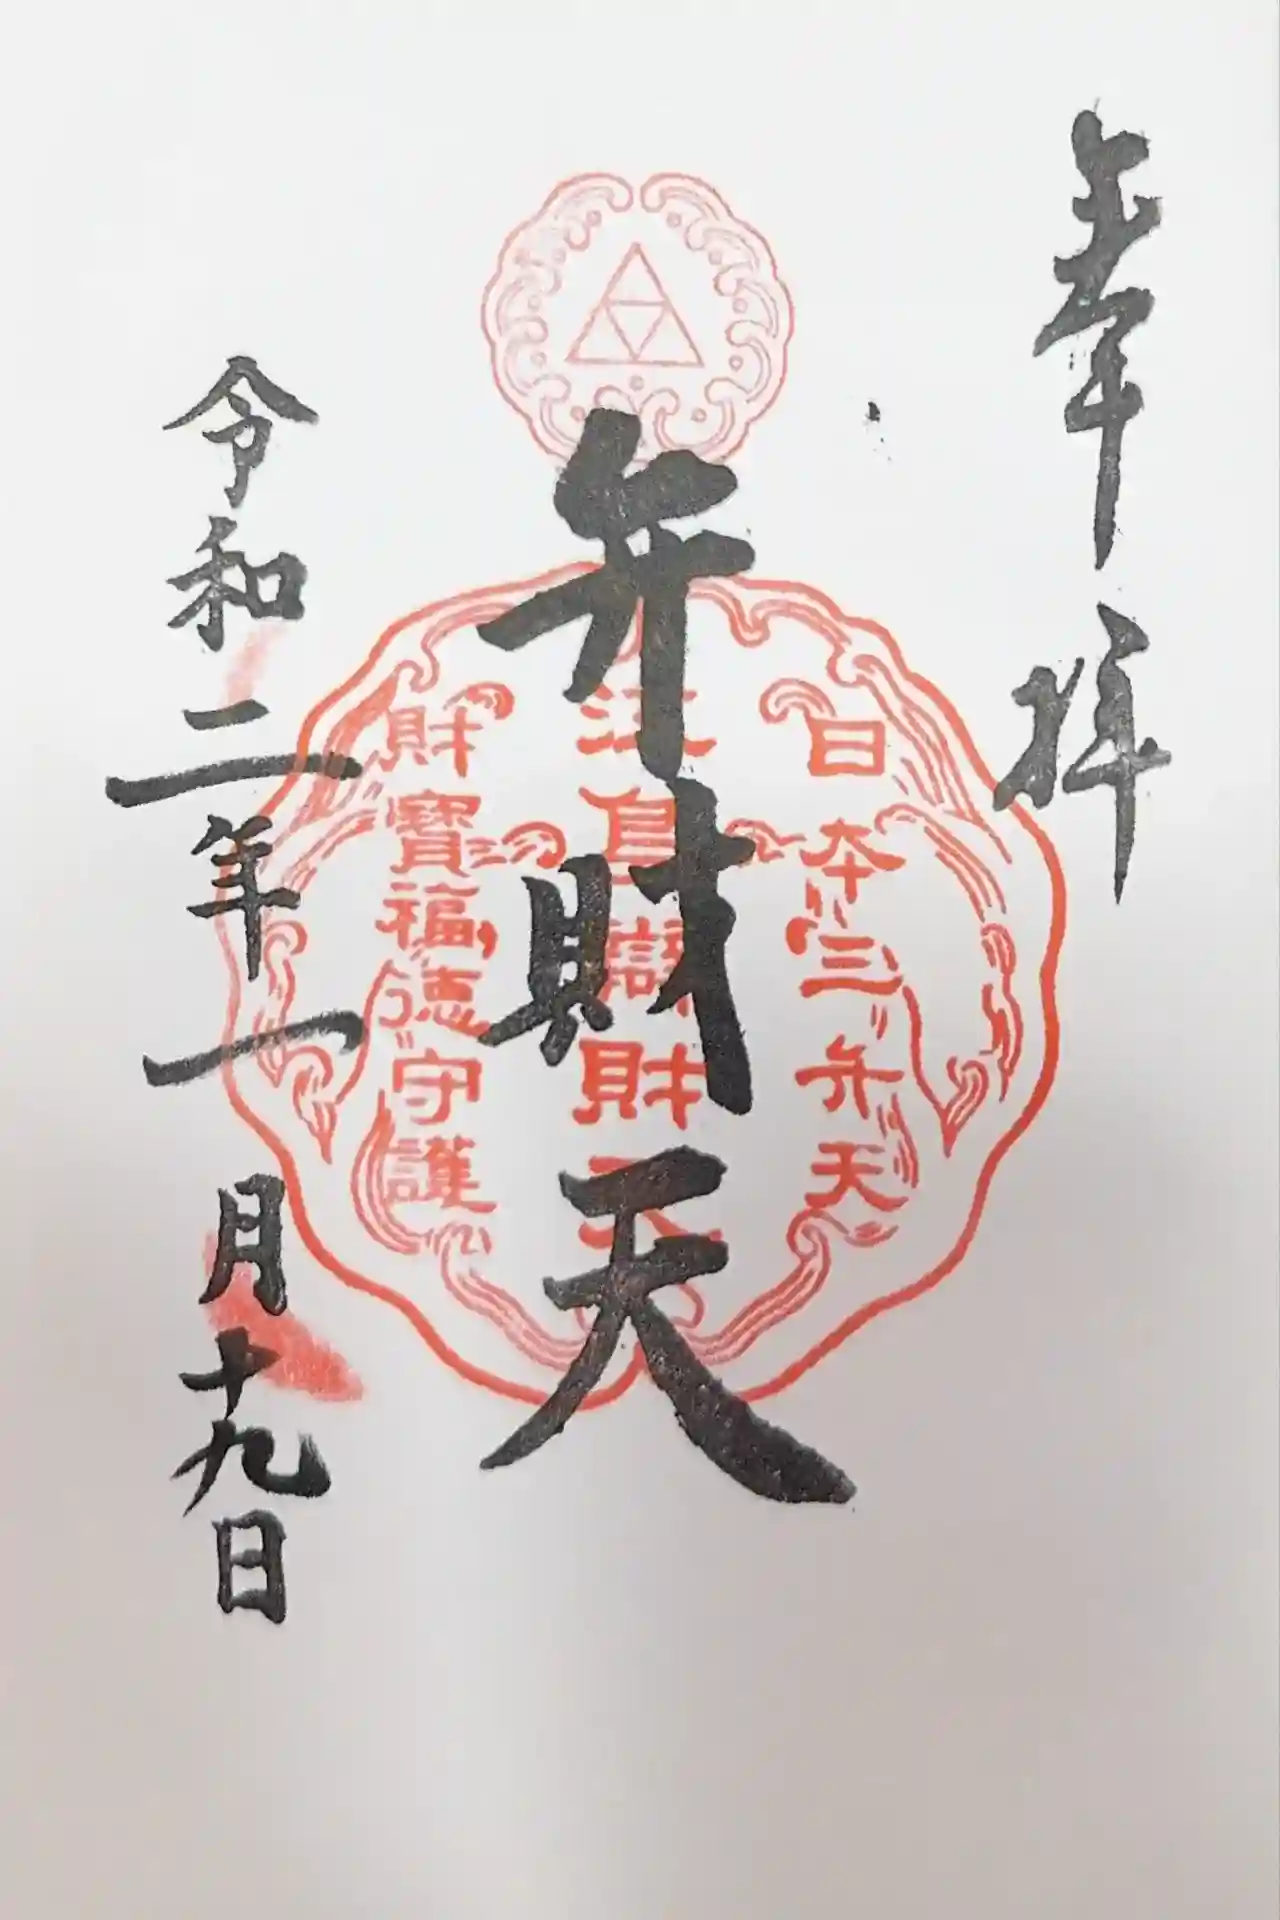 奉拝
日本三弁天
江島辯財天
財寶福徳守護
弁財天
令和二年一月十九日